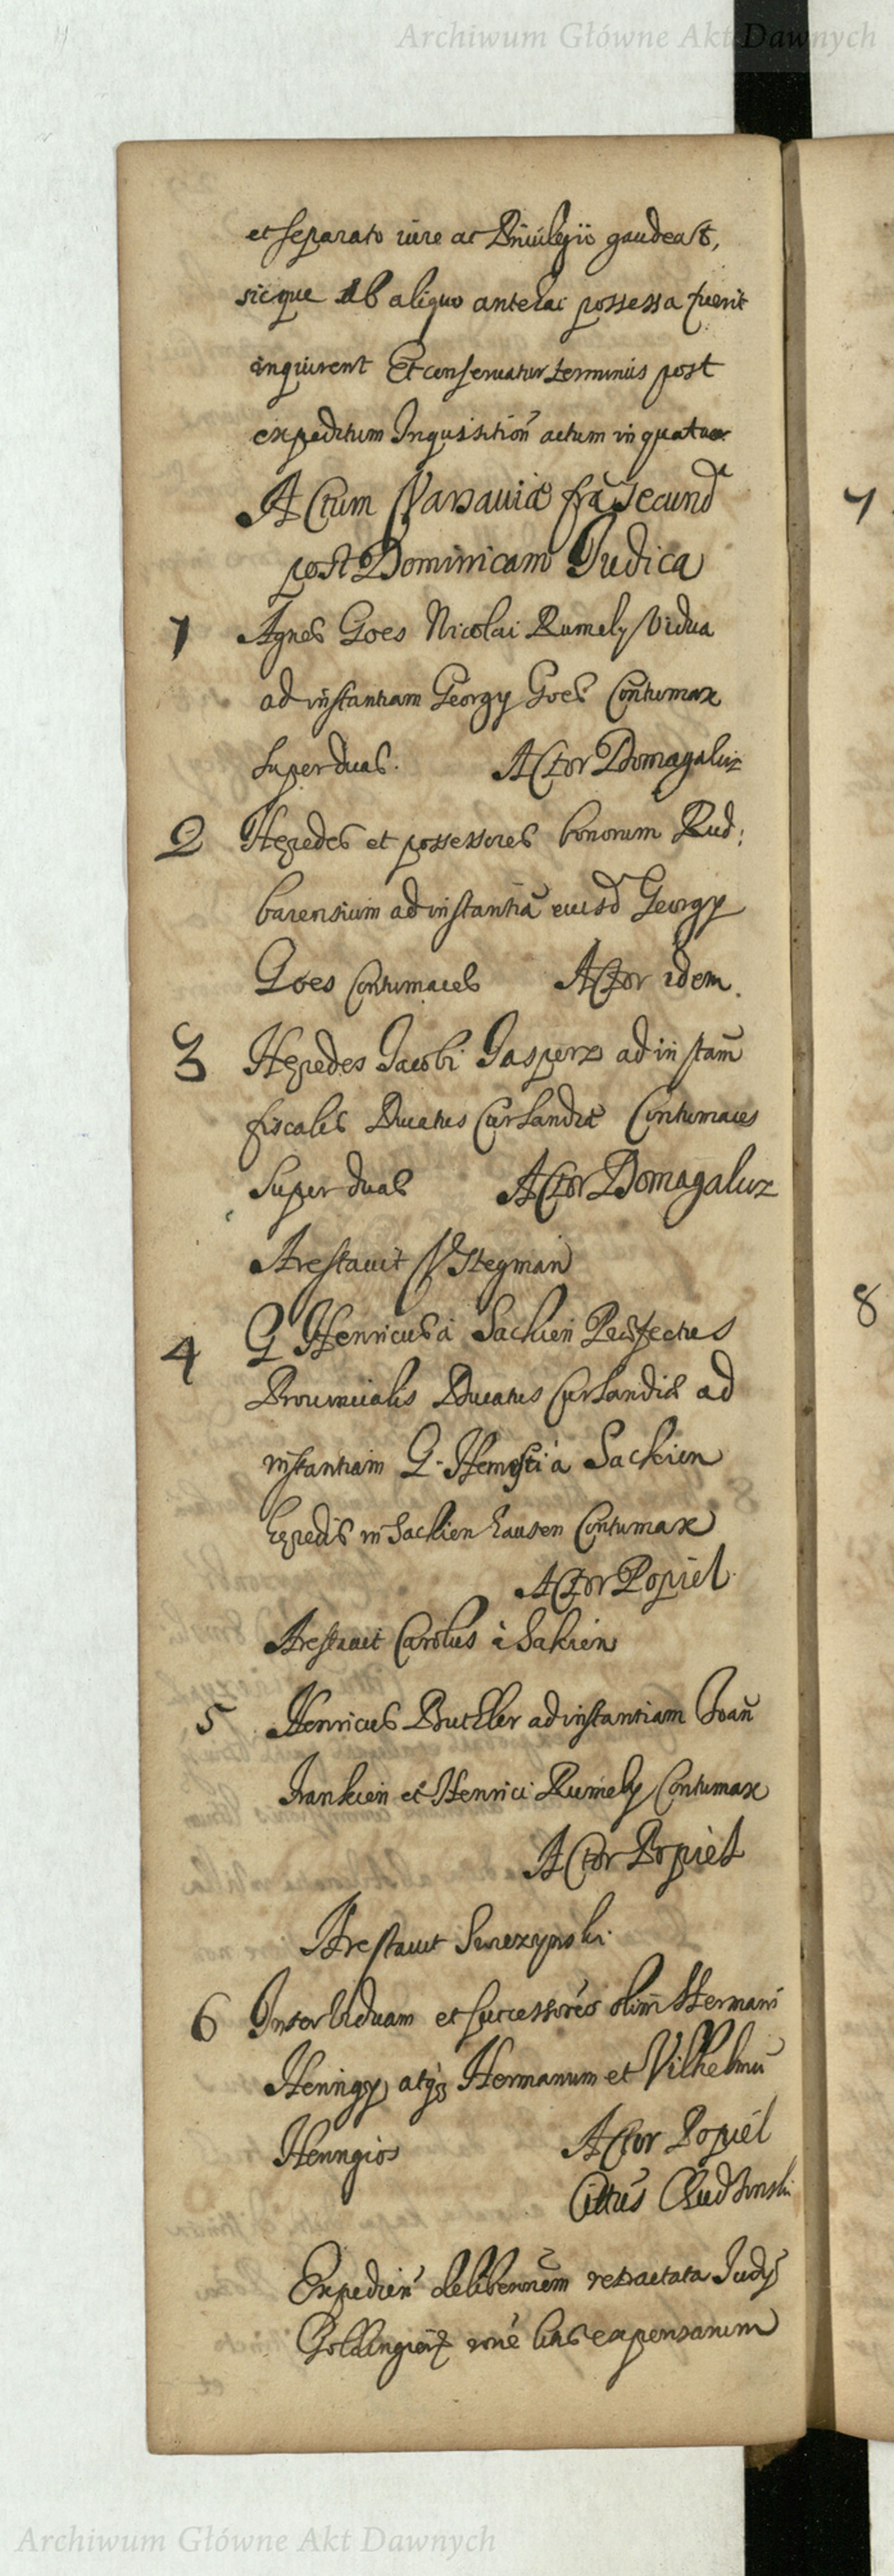 Archiwum Główne Akt Dawnych
et separato iure ac Priuilegio gaudeat,
sicque ab aliquo antehac possessa fuerit
inquirent Et conseruatur terminus post
expeditum Inquisitioñ actum in quatuor
Actum Varsauiæ fra secund
post Dominicam Judica
1 Agnes Goes Nicolai Rumely Vidua
ad instantiam Georgy Goes Contumax
super duas. Actor Domagalicz
2 Heredes et possessores bonorum Rud:
barensium ad instantiã eiusd Georgy
Goes Contumaces Actor idem.
3 Heredes Jacobi Gasperz ad instam̃
fiscalis Ducatus Curlandiæ Contumaces
Super duas Actor Domagalicz
Arestauit V Stegman
4 G Henricus à Sacken Præfectus
Prouincialis Ducatus Curlandiæ ad
instantiam G. à Sacken
heredis in Sacken hausen Contumax
Actor Popiel
Arestauit Carolus à Saken
5 Henricus Buttler ad instantiam Joan̄
Franken et Henrici Rumely Contumax
Actor Popiel
Arestauit
6 Inter Viduam et successores olim Hermani
Heningy, atqz Hermanum et Vilhelmũ
Henngios Actor Popiel
Cittus Chudzinski
Expedien̄ retractata Judy
litis expensarum
7
8
Archiwum Główne Akt Dawnych